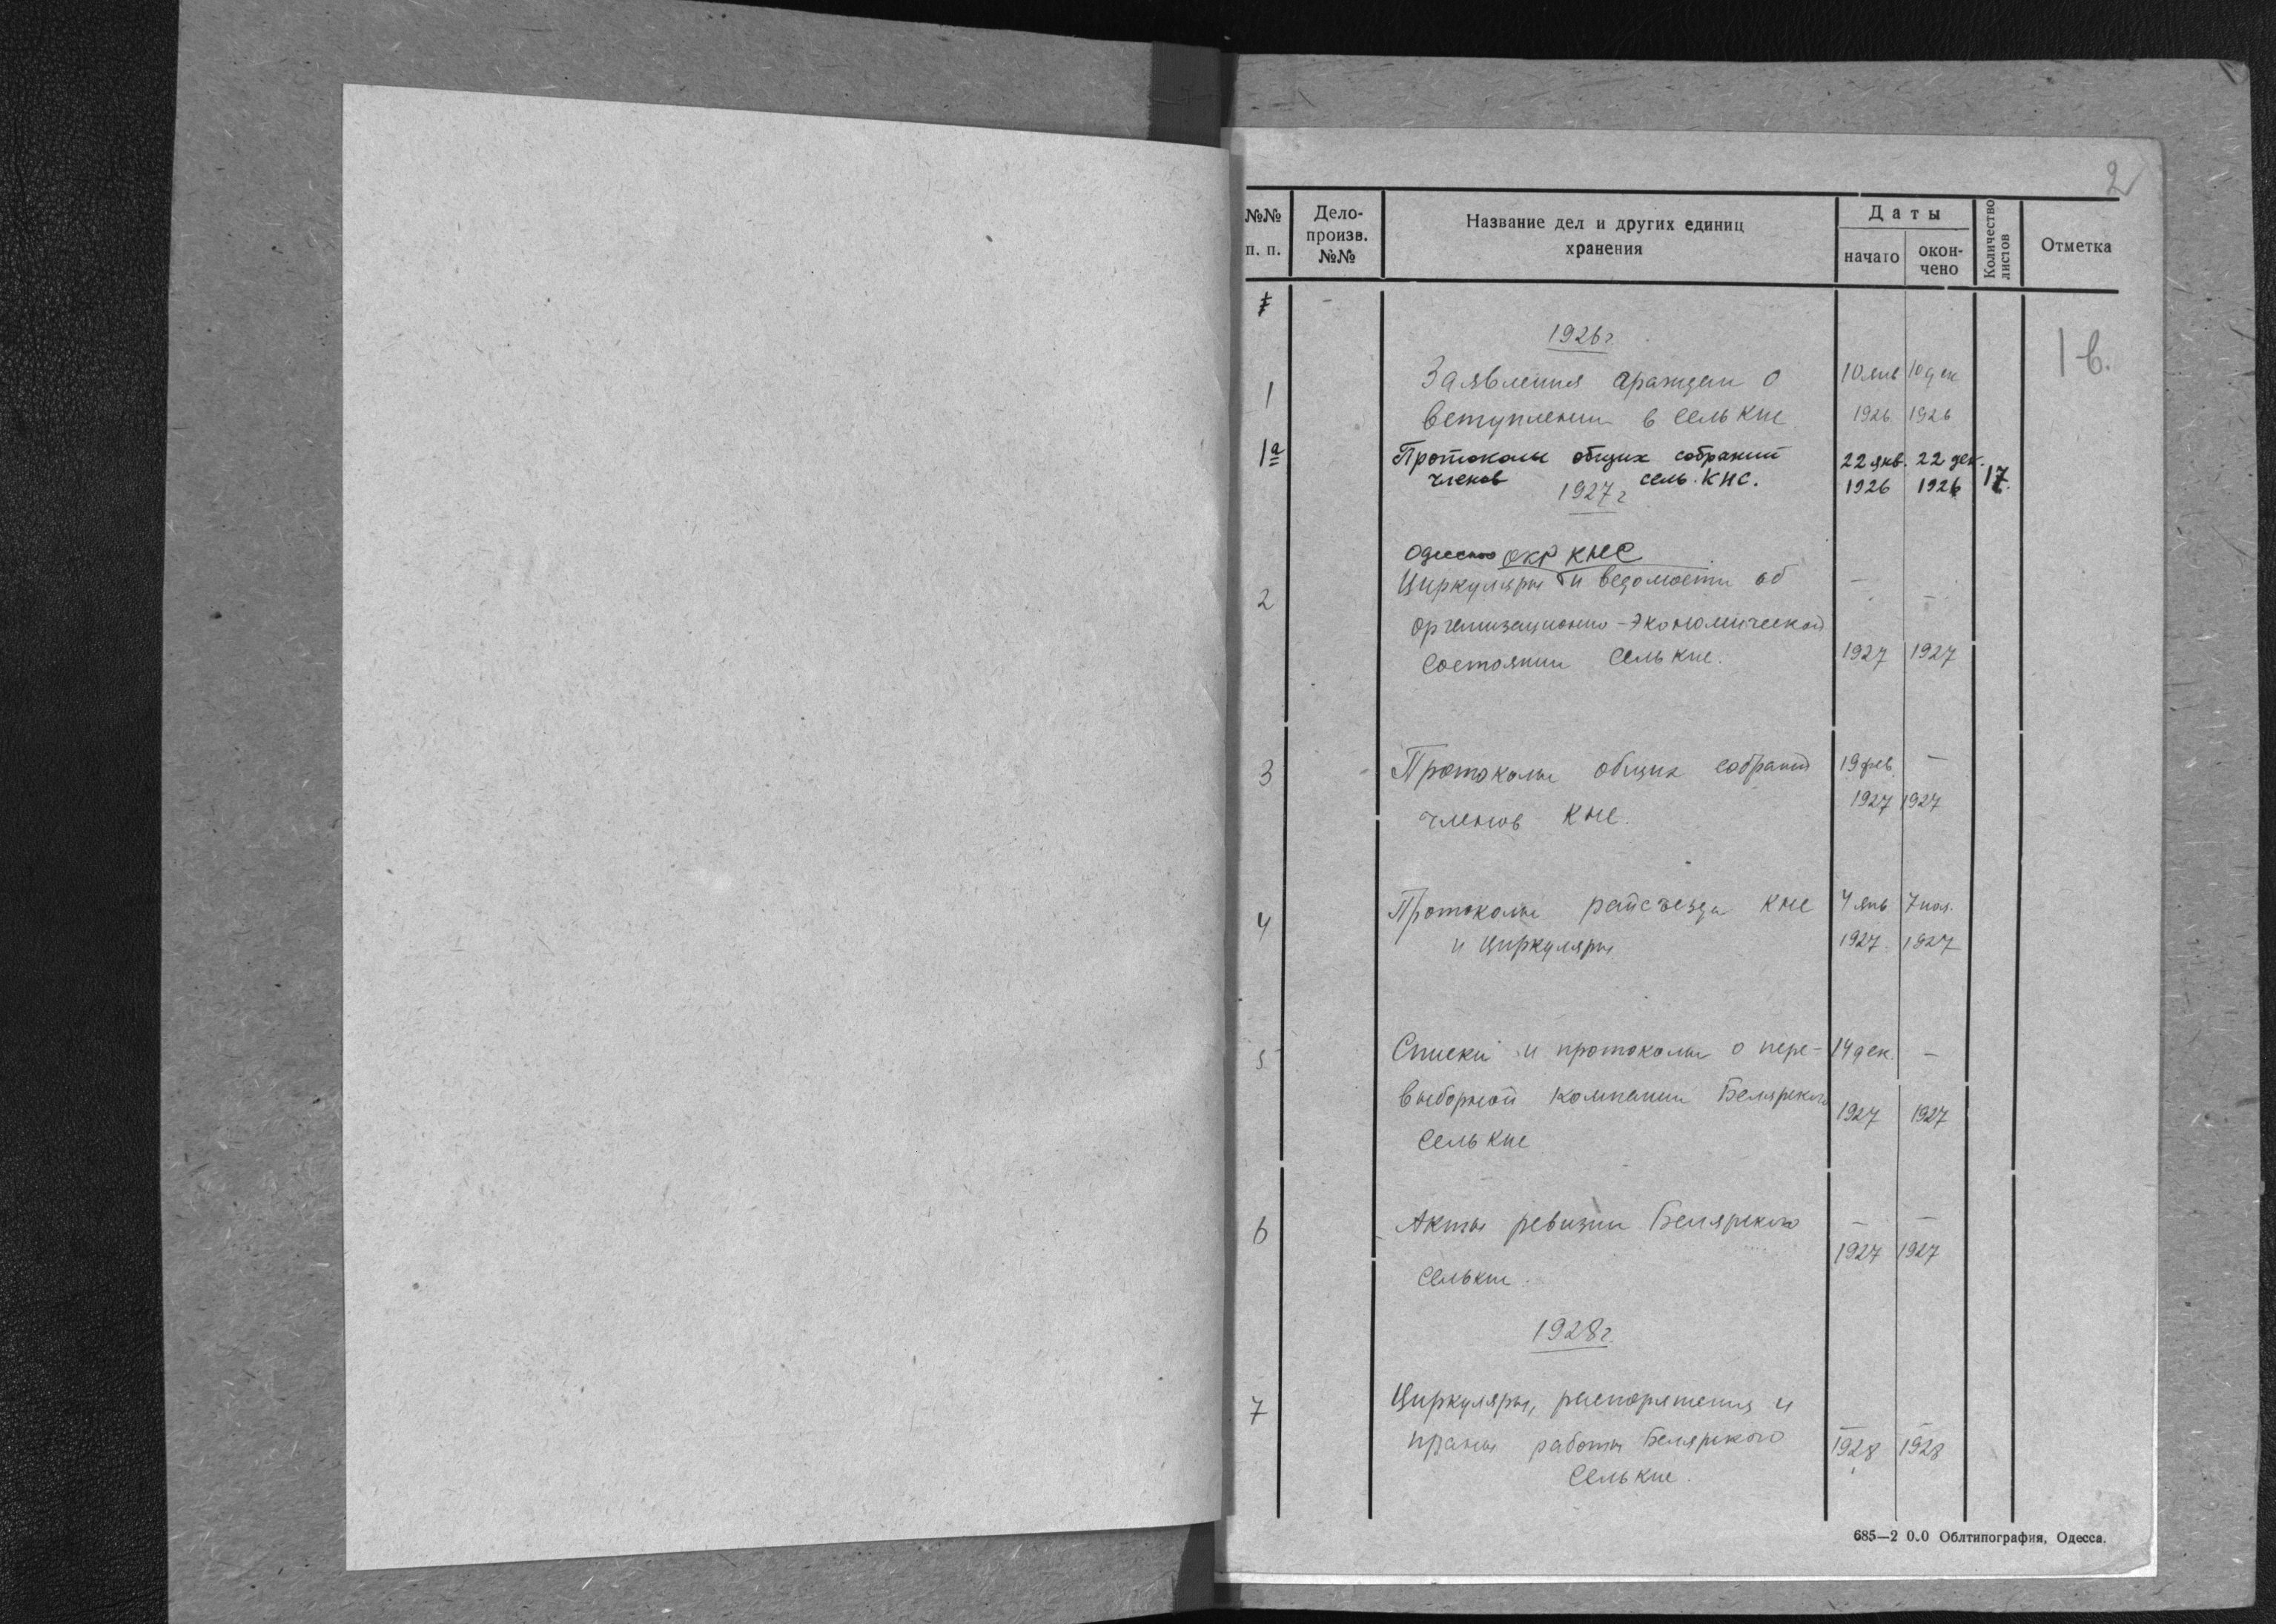 2
№№ п. п.
Дело-
произв.
№№
Название дел и других единиц
хранения
Даты
начато
окон-
чено
Количество
листов
Отметка
1926г.
1 в.
1 Заявления граждан о 10 янв 10 дек
вступлении в сель кнс 1926 1926
1а Протоколы общих собраний 22 янв. 22 дек.
членов сель. КНС. 1926 1926 17.
1927г
Одесского окр КНС
2 Циркуляры и ведомости об — —
организационно-экономической
состоянии Сель кнс. 1927 1927
3 Протоколы общих собраний 19 фев. —
членов кнс. 1927 1927
4 Протоколы райсъезда кнс 4 янв 7 ноя.
и циркуляры 1927 1927
5 Списки и протоколы о пере- 14 дек. —
выборной компании Белярского 1927 1927
Сель кнс
6 Акты ревизии Белярского — —
Селькнс. 1927 1927
1928г.
7 Циркуляры, распоряжения и — —
планы работы Белярского 1928 1928
Сель кнс.
685—2 О.О Облтипография, Одесса.